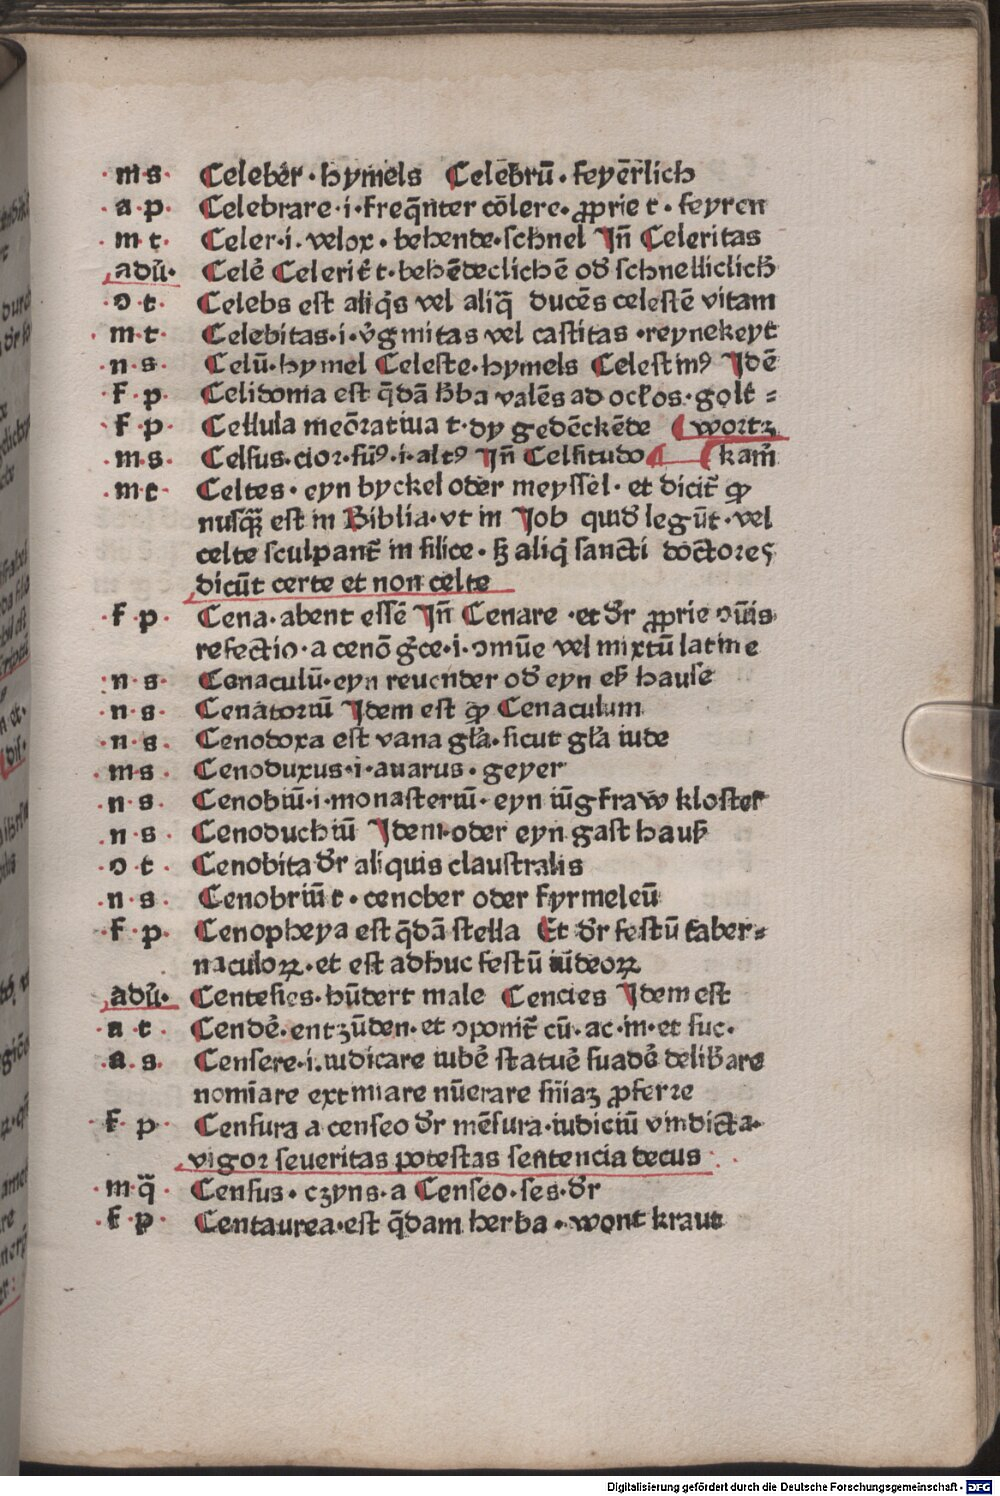 ·m·s· Celeber̄·hymels Celebrū·feyer̄lich
·a·p· Celebrare·i·freq̄nter cōlere·ꝓprie t·feyren
·m·t· Celer·i·velox·behende·schnel Jn̄ Celeritas
adū· Celē Celerit̄ t·behēdeclichē od̄ schnelliclich̄
·ɔ·t· Celebs est aliq̄s vel aliq̄ ducēs celestē vitam
·m·t· Celebitas·i·v̄ginitas vel castitas·reynekeyt
·n·s· Celū·hymel Celeste·hymels Celestinꝰ Jdē
·f·p· Celidonia est q̄dā h̄ba valēs ad oc̄los·golt̄=
·f·p· Cellula meōratiua t·dy gedēckēde wortz
·m·s· Celsus·cior·sūꝰ·i·altꝰ Jn̄ Celsitudo kam̄
·m·t· Celtes·eyn byckel oder meyssel·et dicit̄ ꝙ
nusꝗ̄ est in Biblia·vt in Job quid̄ legūt·vel
celte sculpant̄ in silice·sꝫ aliq̄ sancti doctores
dicūt certe et non celte
·f·p· Cena·abent essē Jn̄ Cenare·et dr̄ ꝓprie ɔūis
refectio·a cenō gr̄ce·i·ɔmūe vel mixtū latine
·n·s· Cenaculū·eyn reuender od̄ eyn eß hause
·n·s· Cenatoriū Jdem est ꝙ Cenaculum
·n·s· Cenodoxa est vana gl̄a·sicut gl̄a iude
·m·s· Cenoduxus·i·auarus·geyer
·n·s· Cenobiū·i·monasteriū·eyn iūgfraw kloster
·n·s· Cenoduchiū Jdem·oder eyn gast hauß
·ɔ·t· Cenobita dr̄ aliquis claustralis
·n·s· Cenobriū t·cenober oder fyrmeleū
·f·p· Cenopheya est q̄dā stella Et dr̄ festū taber=
naculoꝝ·et est adhuc festū iūdeoꝝ
adū· Centesies·hūdert male Cencies Jdem est
·a·t· Cendē·entzūden·et ɔponit̄ cū·ac·in·et suc·
·a·s· Censere·i·iudicare iubē statuē suadē delib̄are
nomīare extimare nūerare sn̄iaꝫ ꝓferre
·f·p· Censura a censeo dr̄ mēsura·iudiciū vindicta·
vigor seueritas potestas sentencia decus
·m·q̄· Census·czyns·a Censeo·ses·dr̄
·f·p· Centaurea·est q̄dam herba·wont kraut
Digitalisierung gefördert durch die Deutsche Forschungsgemeinschaft - DFG